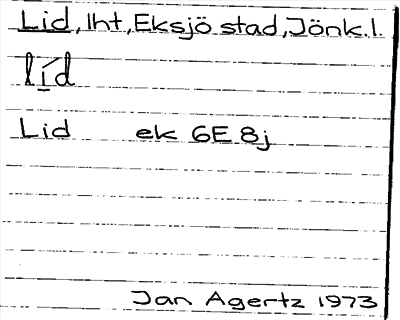 Lid, lht, Eksjö stad, Jönk.l.
líd
Lid ek 6E 8j
Jan Agertz 1973